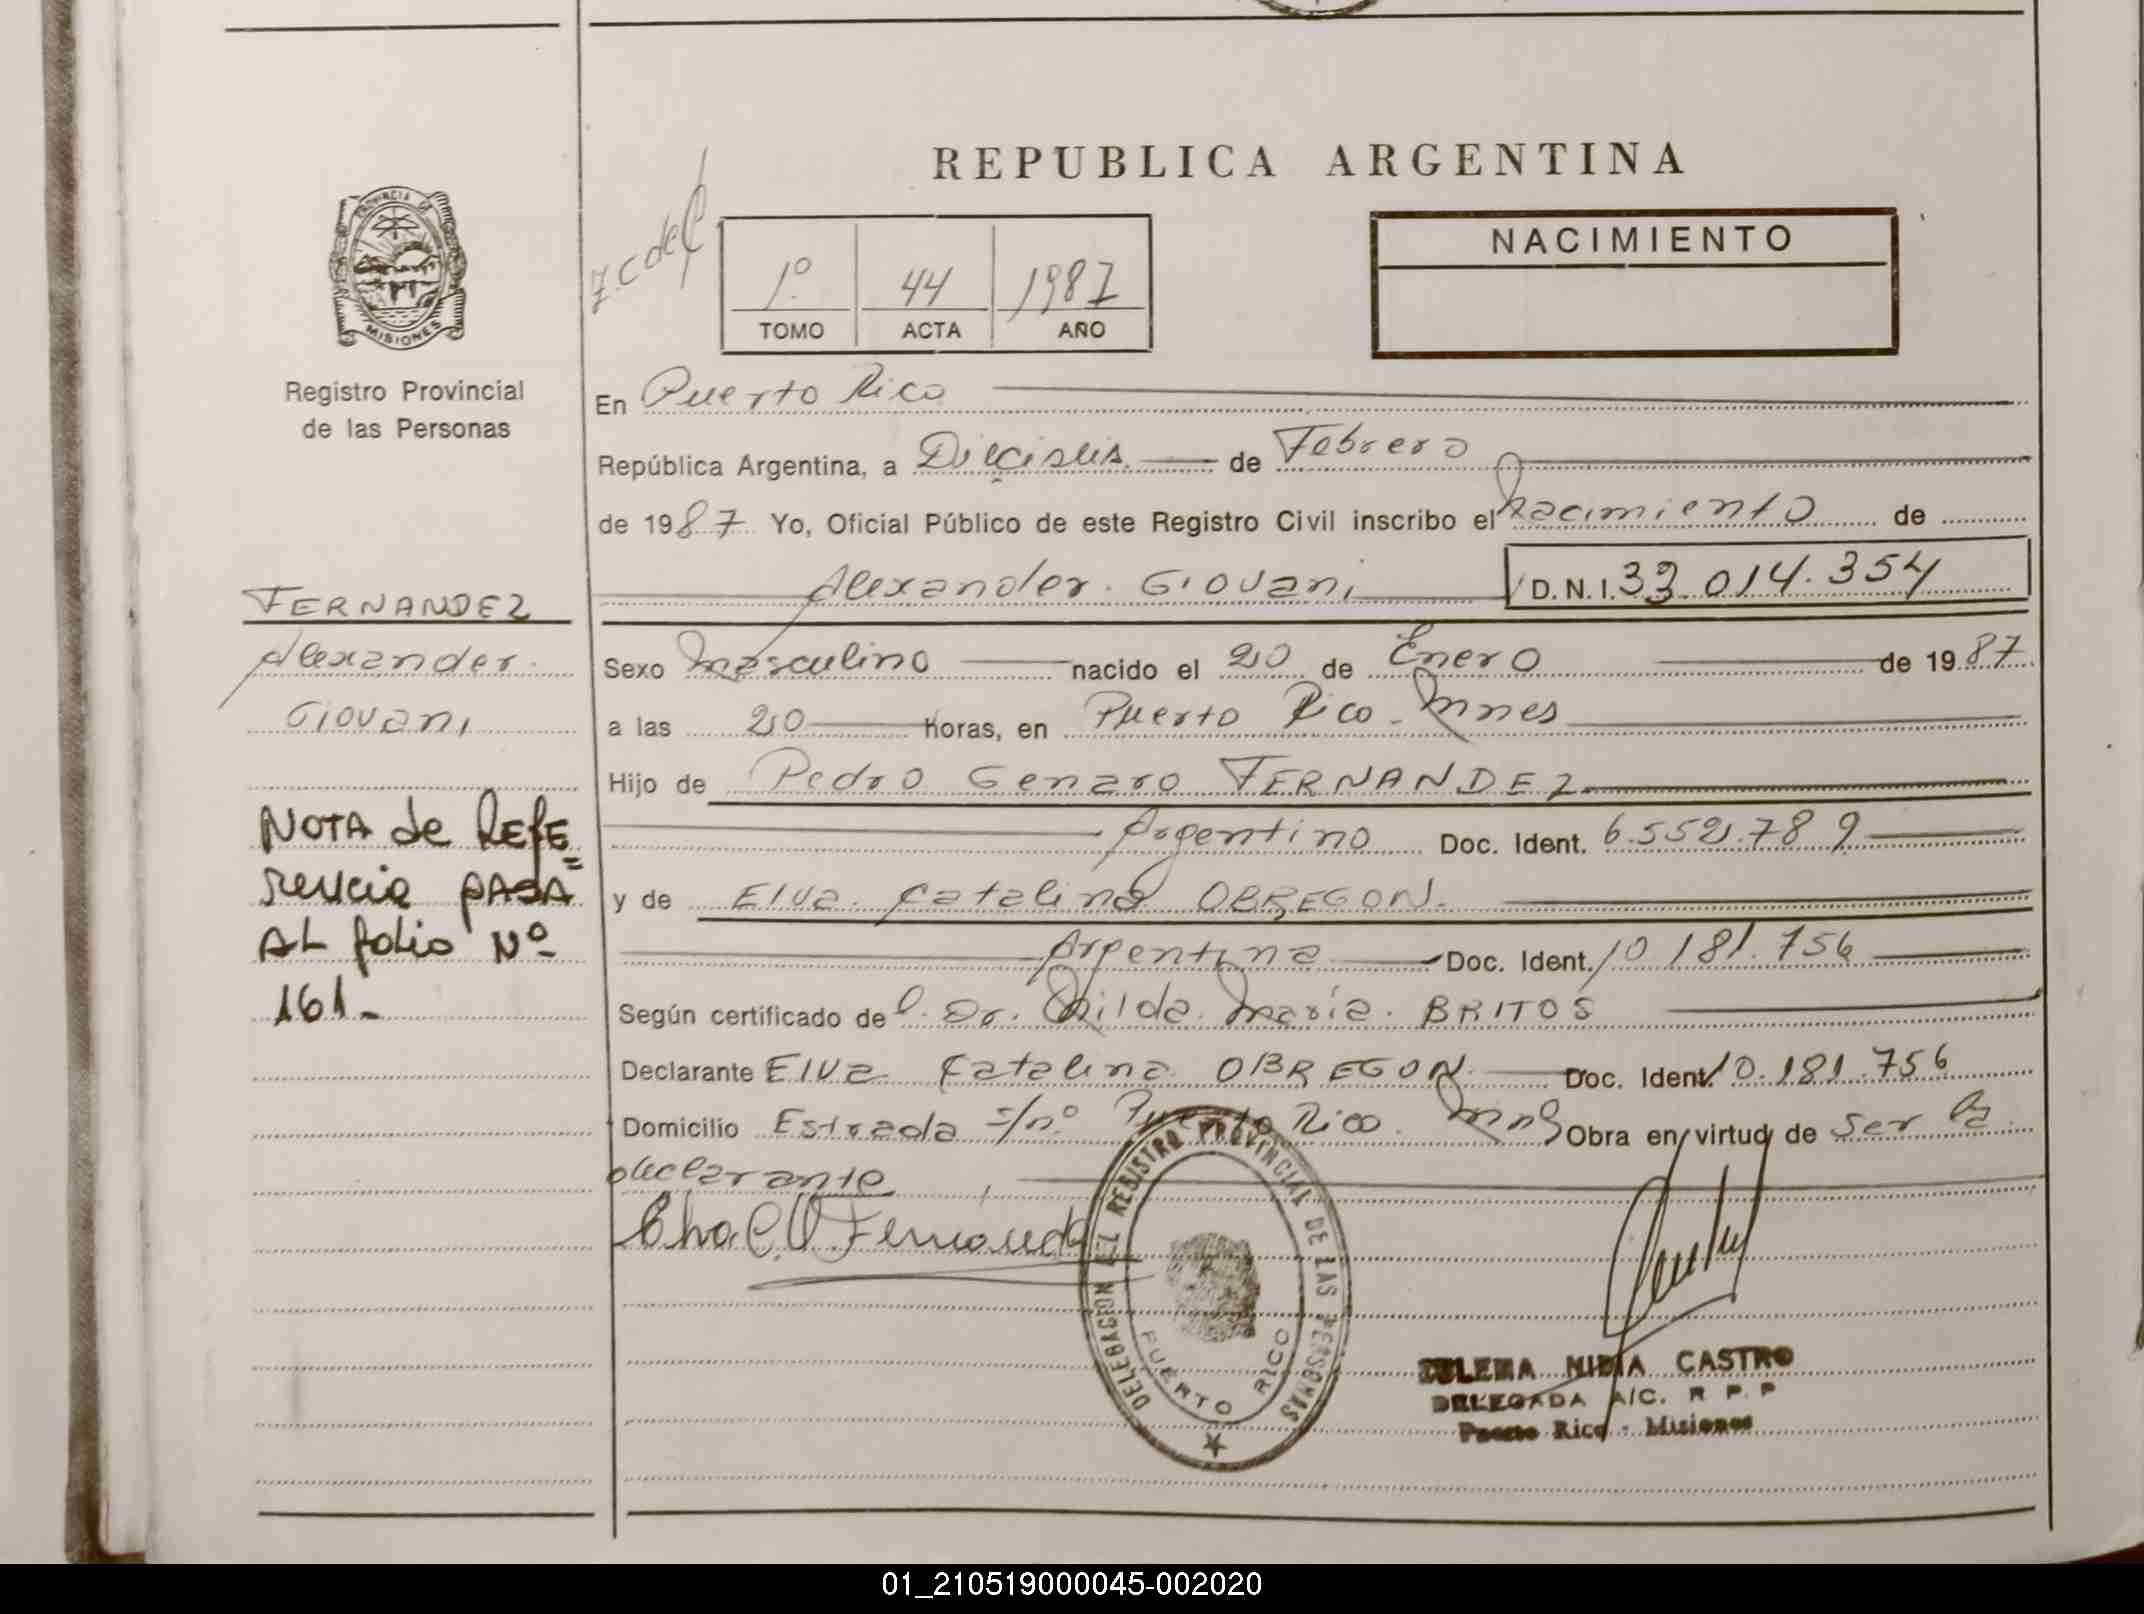 REPUBLICA ARGENTINA
PROVINCIA DE MISIONES
Registro Provincial
de las Personas
1º 44 1987
TOMO ACTA AÑO
NACIMIENTO
En Puerto Rico
República Argentina, a Dieciseis de Febrero
de 1987 Yo, Oficial Público de este Registro Civil inscribo el Nacimiento de
Alexander Giovani D.N.I. 33.014.354
FERNANDEZ
Alexander
Giovani
Sexo Masculino nacido el 20 de Enero de 1987
a las 20 horas, en Puerto Rico - Mnes
Hijo de Pedro Genaro FERNANDEZ
Argentino Doc. Ident. 6.552.789
y de Elva Catalina OBREGON.
Argentina Doc. Ident. 10.181.756
Según certificado de Dr. Hilda María BRITOS
Declarante Elva Catalina OBREGON Doc. Ident. 10.181.756
Domicilio Estrada s/nº Puerto Rico. Mns Obra en virtud de ser la
declarante
NOTA de REFE=
rencia PASA
AL folio Nº
161-
DELEGACION DEL REGISTRO PROVINCIAL DE LAS PERSONAS
PUERTO RICO
ZULEMA NIDIA CASTRO
DELEGADA A/C. R P P
Puerto Rico - Misiones
01_210519000045-002020